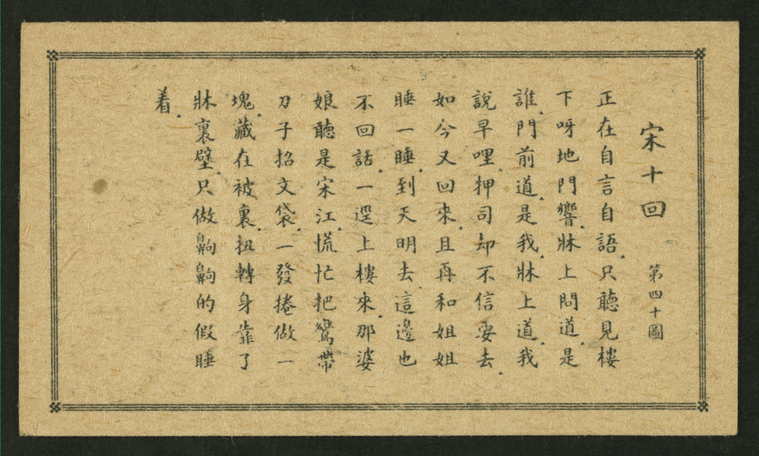 宋十回
第四十圖
正在自言自語.只聽見樓
下呀地門響.牀上問道.是
誰.門前道.是我.牀上道.我
說早哩.押司却不信要去.
如今又回來.且再和姐姐
睡一睡.到天明去.這邊也
不回話.一逕上樓來.那婆
娘聽是宋江.慌忙把鸞帶
刀子招文袋.一發捲做一
塊.藏在被裏.扭轉身.靠了
牀裏壁.只做齁齁的假睡
着.